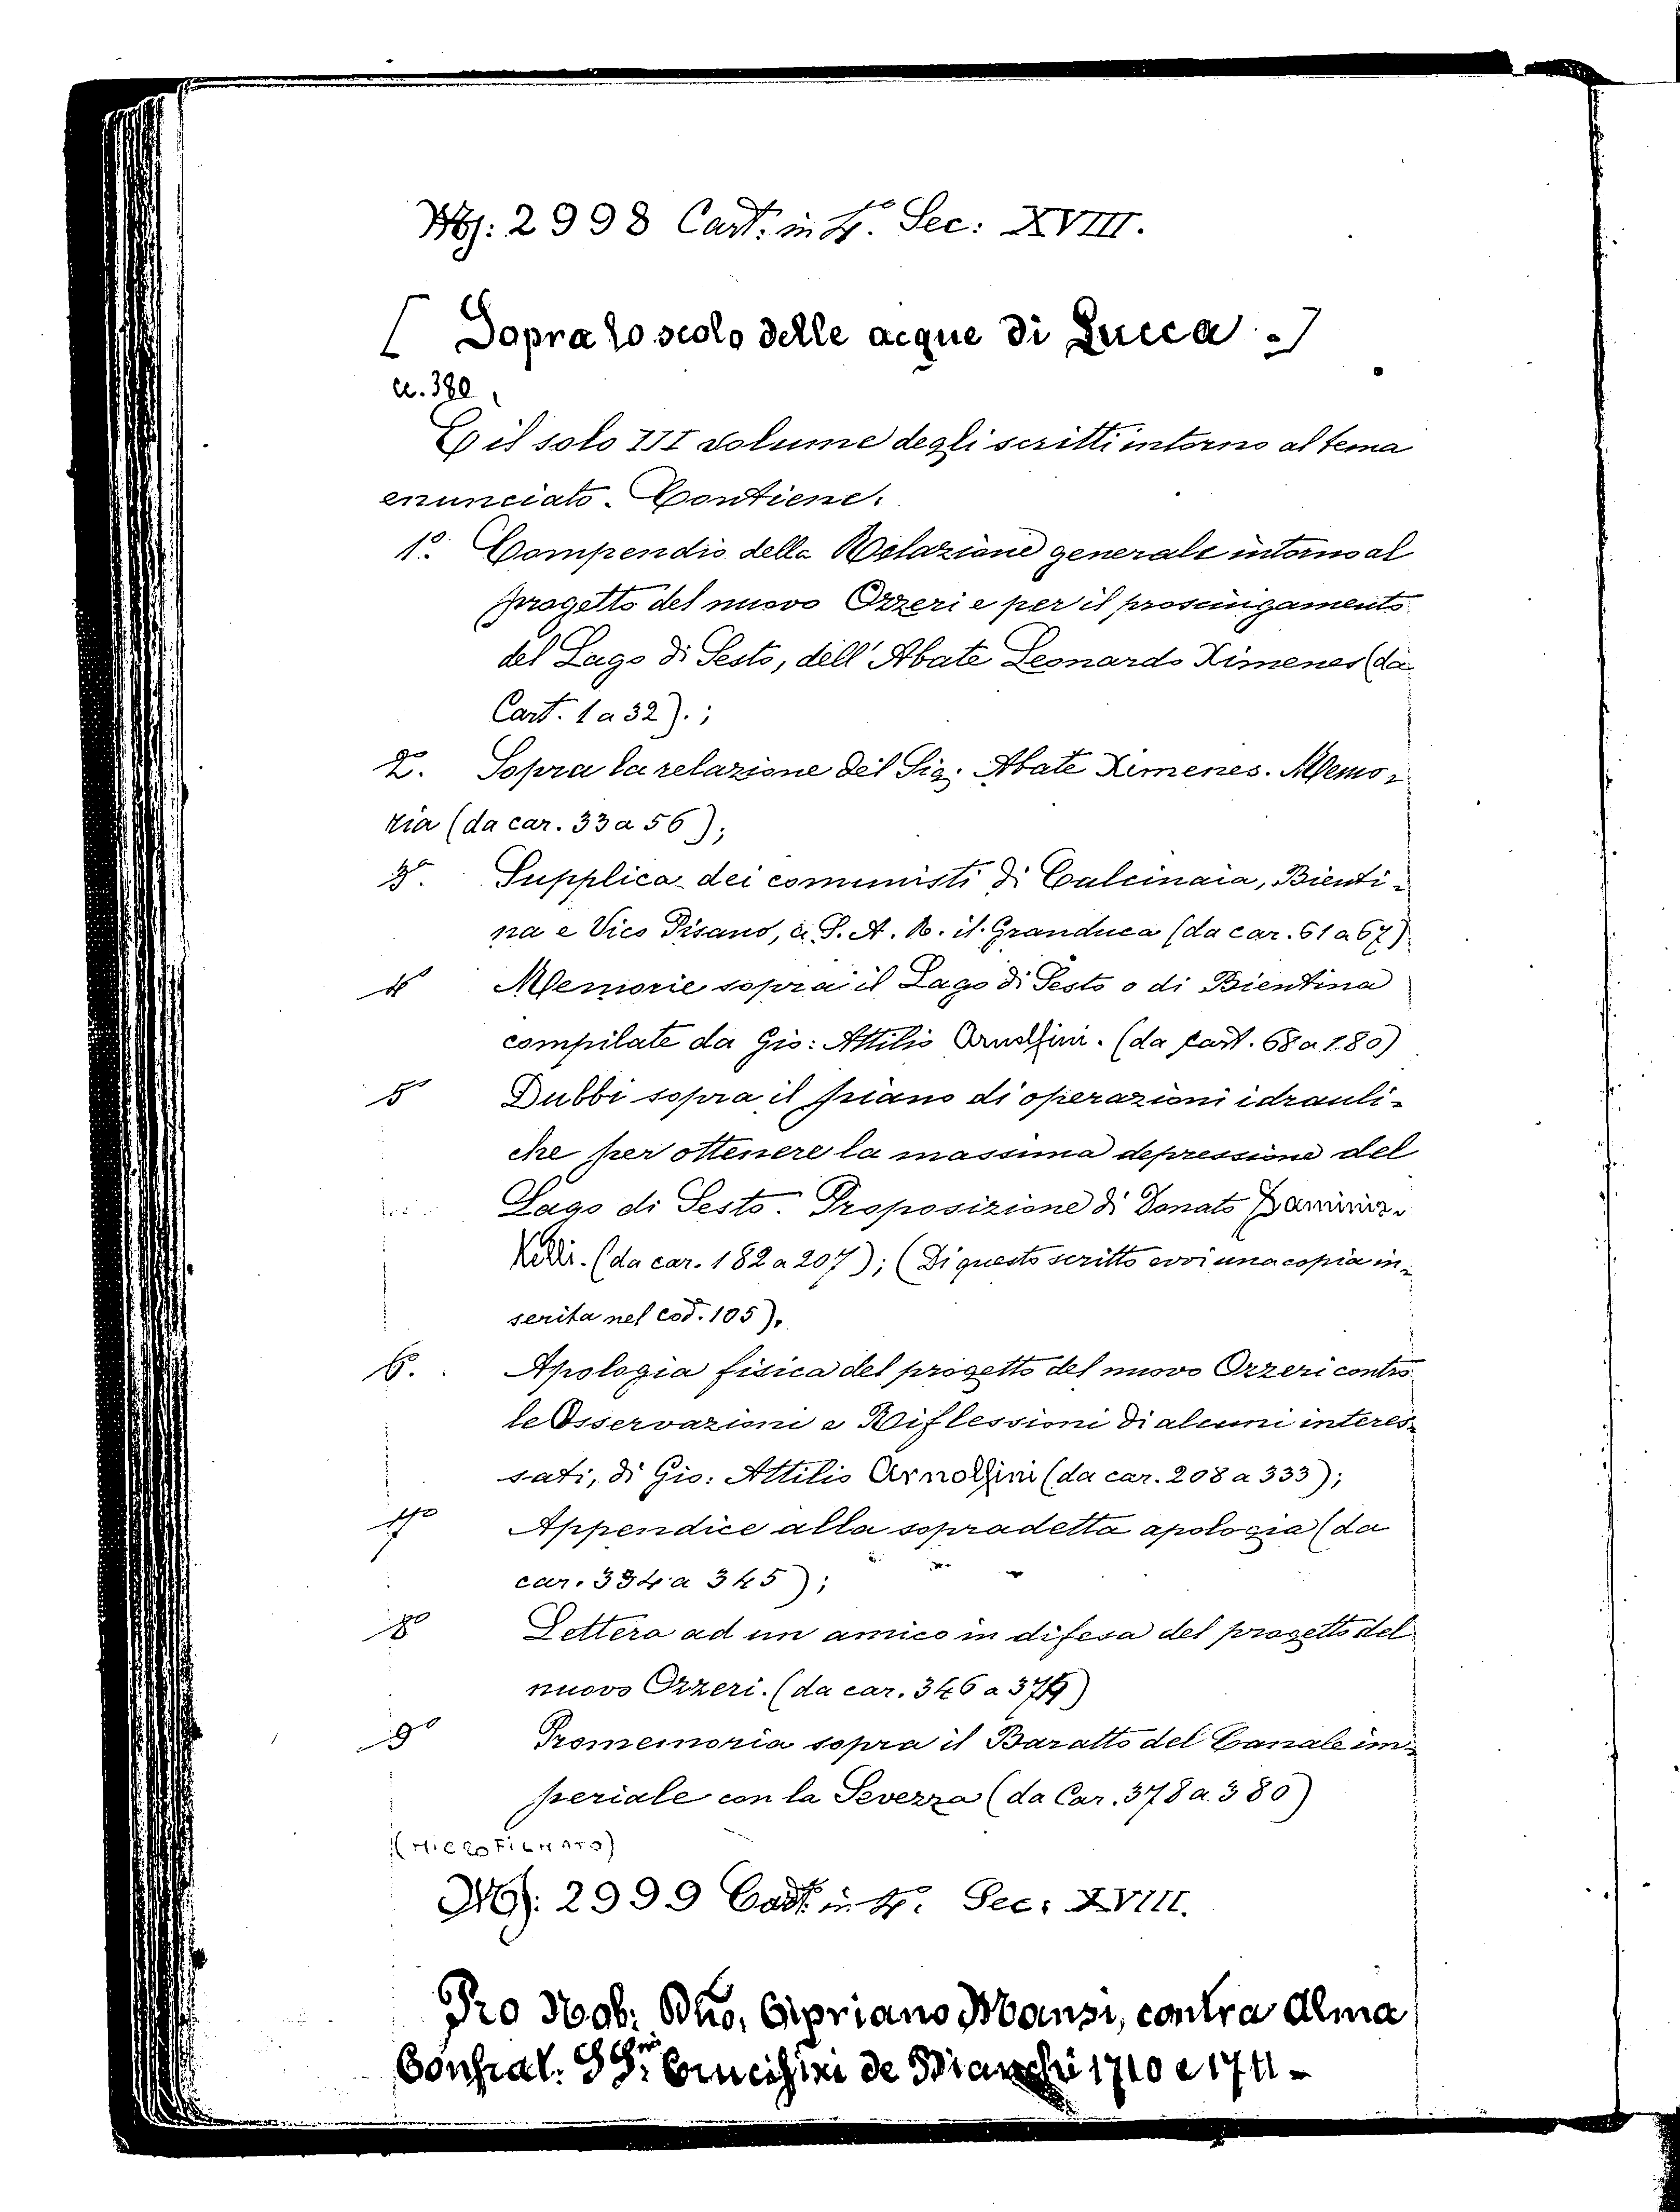 Ms: 2998 Cart: in 4º. Sec: XVIII.
[ Sopra lo scolo delle acque di Lucca .]
cc. 380
È il solo III volume degli scritti intorno al tema
enunciato. Contiene:
1º. Compendio della Relazione generale intorno al
progetto del nuovo Ozzeri e per il prosciugamento
del Lago di Sesto, dell' Abate Leonardo Ximenes (da
Cart. 1 a 32).;
2. Sopra la relazione del Sig. Abate Ximenes. Memo-
ria (da car. 33 a 56);
3º. Supplica dei comunisti di Calcinaia, Bienti-
na e Vico Pisano, a S. A. R. il Granduca (da car. 61 a 67)
4º Memorie sopra il Lago di Sesto o di Bientina
compilate da Gio: Attilio Arnolfini. (da cart. 68 a 180)
5º Dubbi sopra il piano di operazioni idrauli-
che per ottenere la massima depressione del
Lago di Sesto. Proposizione di Donato
(da car. 182 a 207); (Di questo scritto evvi una copia in-
serita nel cod. 105).
6º. Apologia fisica del progetto del nuovo Ozzeri contro
le Osservazioni e Riflessioni di alcuni interes-
sati, di Gio: Attilio Arnolfini (da car. 208 a 333);
7º Appendice alla sopradetta apologia (da
car. 334 a 345);
8º Lettera ad un amico in difesa del progetto del
nuovo Ozzeri. (da car. 346 a
9º Promemoria sopra il Baratto del Canale im-
periale con la Severza (da Car. 378 a 380)
(MICROFILMATO)
Ms: 2999 Cart: in 4º. Sec: XVIII.
Pro Nob: Dño, Cipriano Mansi, contra Alma
Confrat. SSmi Crucifixi de Bianchi 1710 e 1711 -